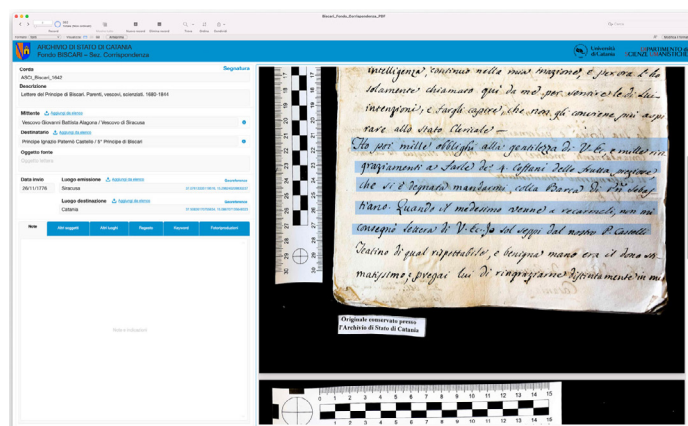 Biscari_Fondo_Corrispondenza_PDF
ARCHIVIO DI STATO DI CATANIA
Fondo BISCARI – Sez. Corrispondenza
Università di Catania
DIPARTIMENTO di SCIENZE UMANISTICHE
Corda
Segnatura
ASCt_Biscari_1642
Descrizione
Lettere del Principe di Biscari. Parenti, vescovi, scienziati. 1680-1844
Mittente Aggiungi da elenco
Vescovo Giovanni Battista Alagona / Vescovo di Siracusa
Destinatario Aggiungi da elenco
Principe Ignazio Paternò Castello / II° Principe di Biscari
Oggetto fonte
Oggetto lettera
Data invio
Luogo emissione Aggiungi da elenco
26/11/1776
Siracusa
Luogo destinazione Aggiungi da elenco
Catania
Note
Altri soggetti
Altri luoghi
Regesto
Keyword
Foto/riproduzioni
Note e indicazioni
intelligenza, continuo nella mia inazione, e per ora l'ho
solamente chiamato qui da me per sentire le di lui
intenzioni, e fargli capire, che non gli conviene più aspi
rare allo stato Clericale —
Ho poi mille obblighi alla gentilezza di V. Ecc. e mille rin
graziamenti a farle de' 4 Coffani delle frutta
che si è degnata mandarmi, colla Barca di
tiano. Quando il medesimo venne a recarmeli, non mi
consegnò lettera di V. Ecc. Io sol seppi dal nostro P. Castelli
Teatino di qual rispettabile, e benigna mano era il dono sti
matissimo; pregai lui di ringraziarne distintamente in mi
Originale conservato presso
l'Archivio di Stato di Catania
17 18 19 20 21 22 23 24 25 26 27 28 29 30
0 1 2 3 4 5 6 7 8 9 10 11 12 13 14 15